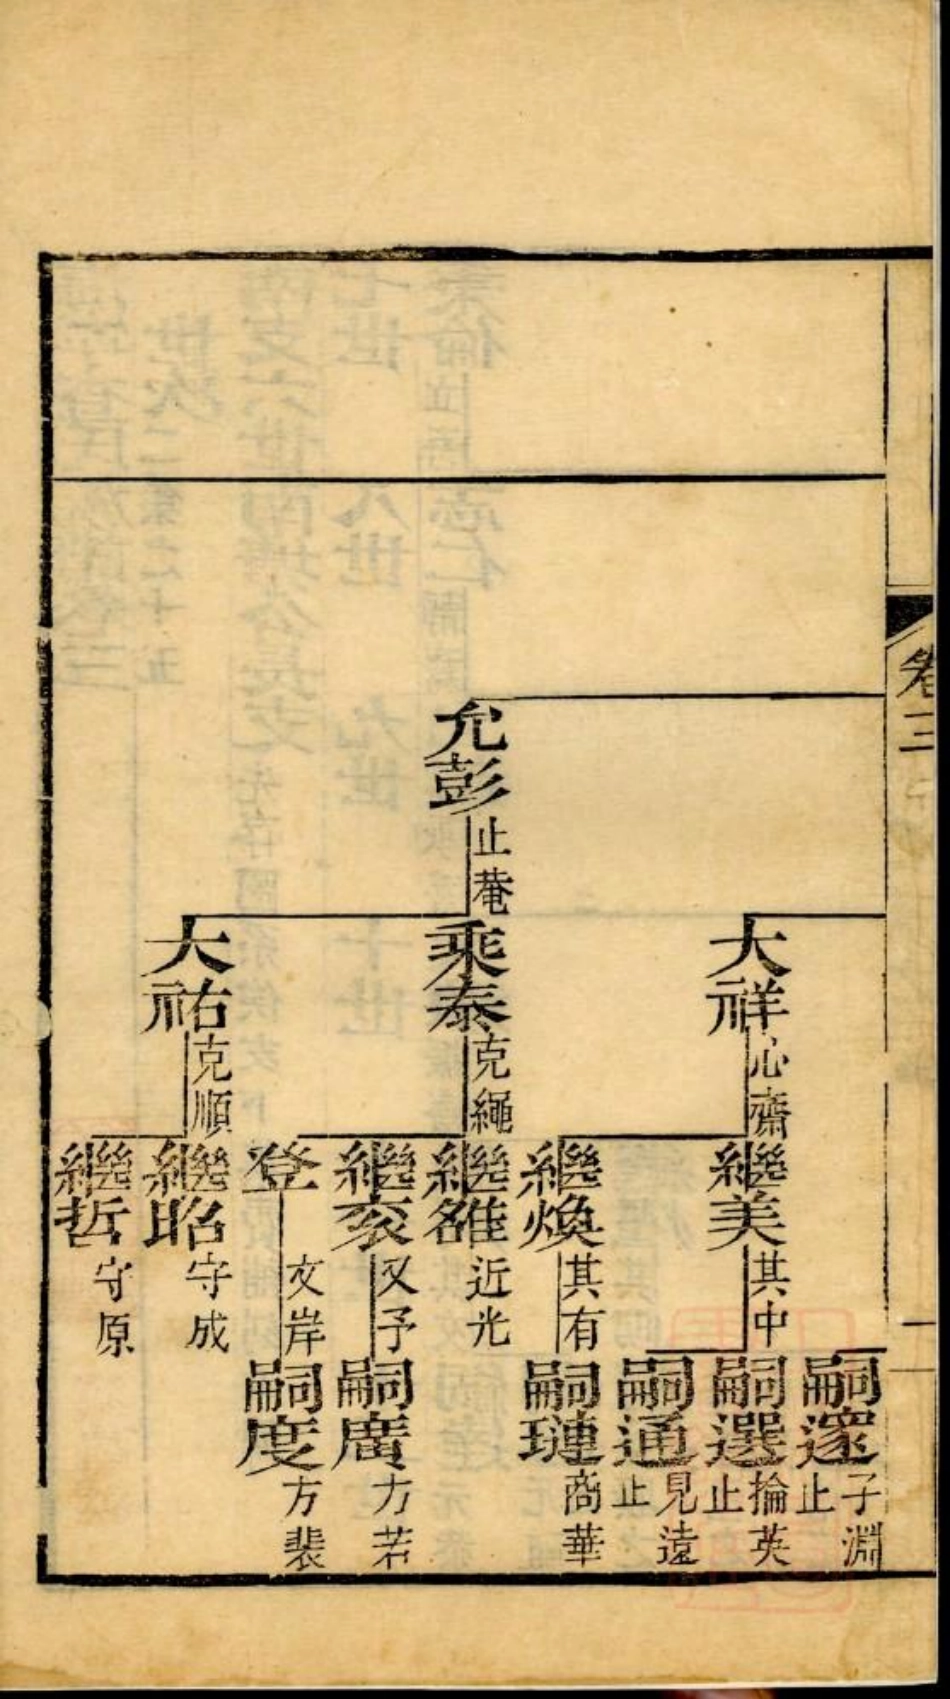 卷三
允彭 止菴
大祥 心齋
乘泰 克繩
大祐 克順
繼美 其中
繼煥 其有
繼雒 近光
繼 又予
登 文岸
繼昭 守成
繼哲 守原
嗣邃 子淵 止
嗣選 掄英 止
嗣通 見遠 止
嗣璉 商華
嗣廣 方若
嗣度 方裴